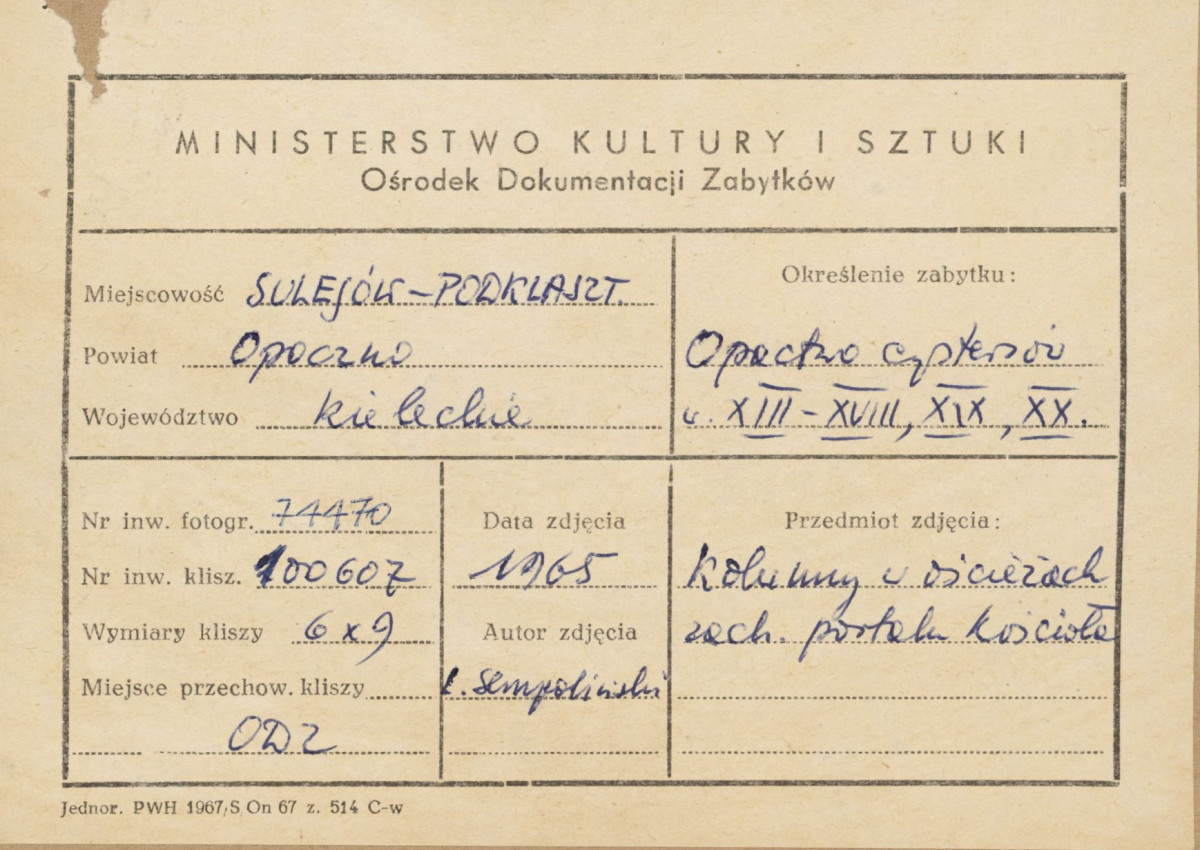 MINISTERSTWO KULTURY I SZTUKI
Ośrodek Dokumentacji Zabytków
Miejscowość SULEJÓW-PODKLASZT.
Powiat Opoczno
Województwo kieleckie
Określenie zabytku:
Opactwo cystersów
w. XIII - XVIII, XIX, XX.
Nr inw. fotogr. 74470
Nr inw. klisz. 100607
Wymiary kliszy 6 x 9
Miejsce przechow. kliszy
ODZ
Data zdjęcia
1965
Autor zdjęcia
L. Sempoliński
Przedmiot zdjęcia:
Kolumny w ościeżach
zach. portalu kościoła
Jednor. PWH 1967/S On 67 z. 514 C-w